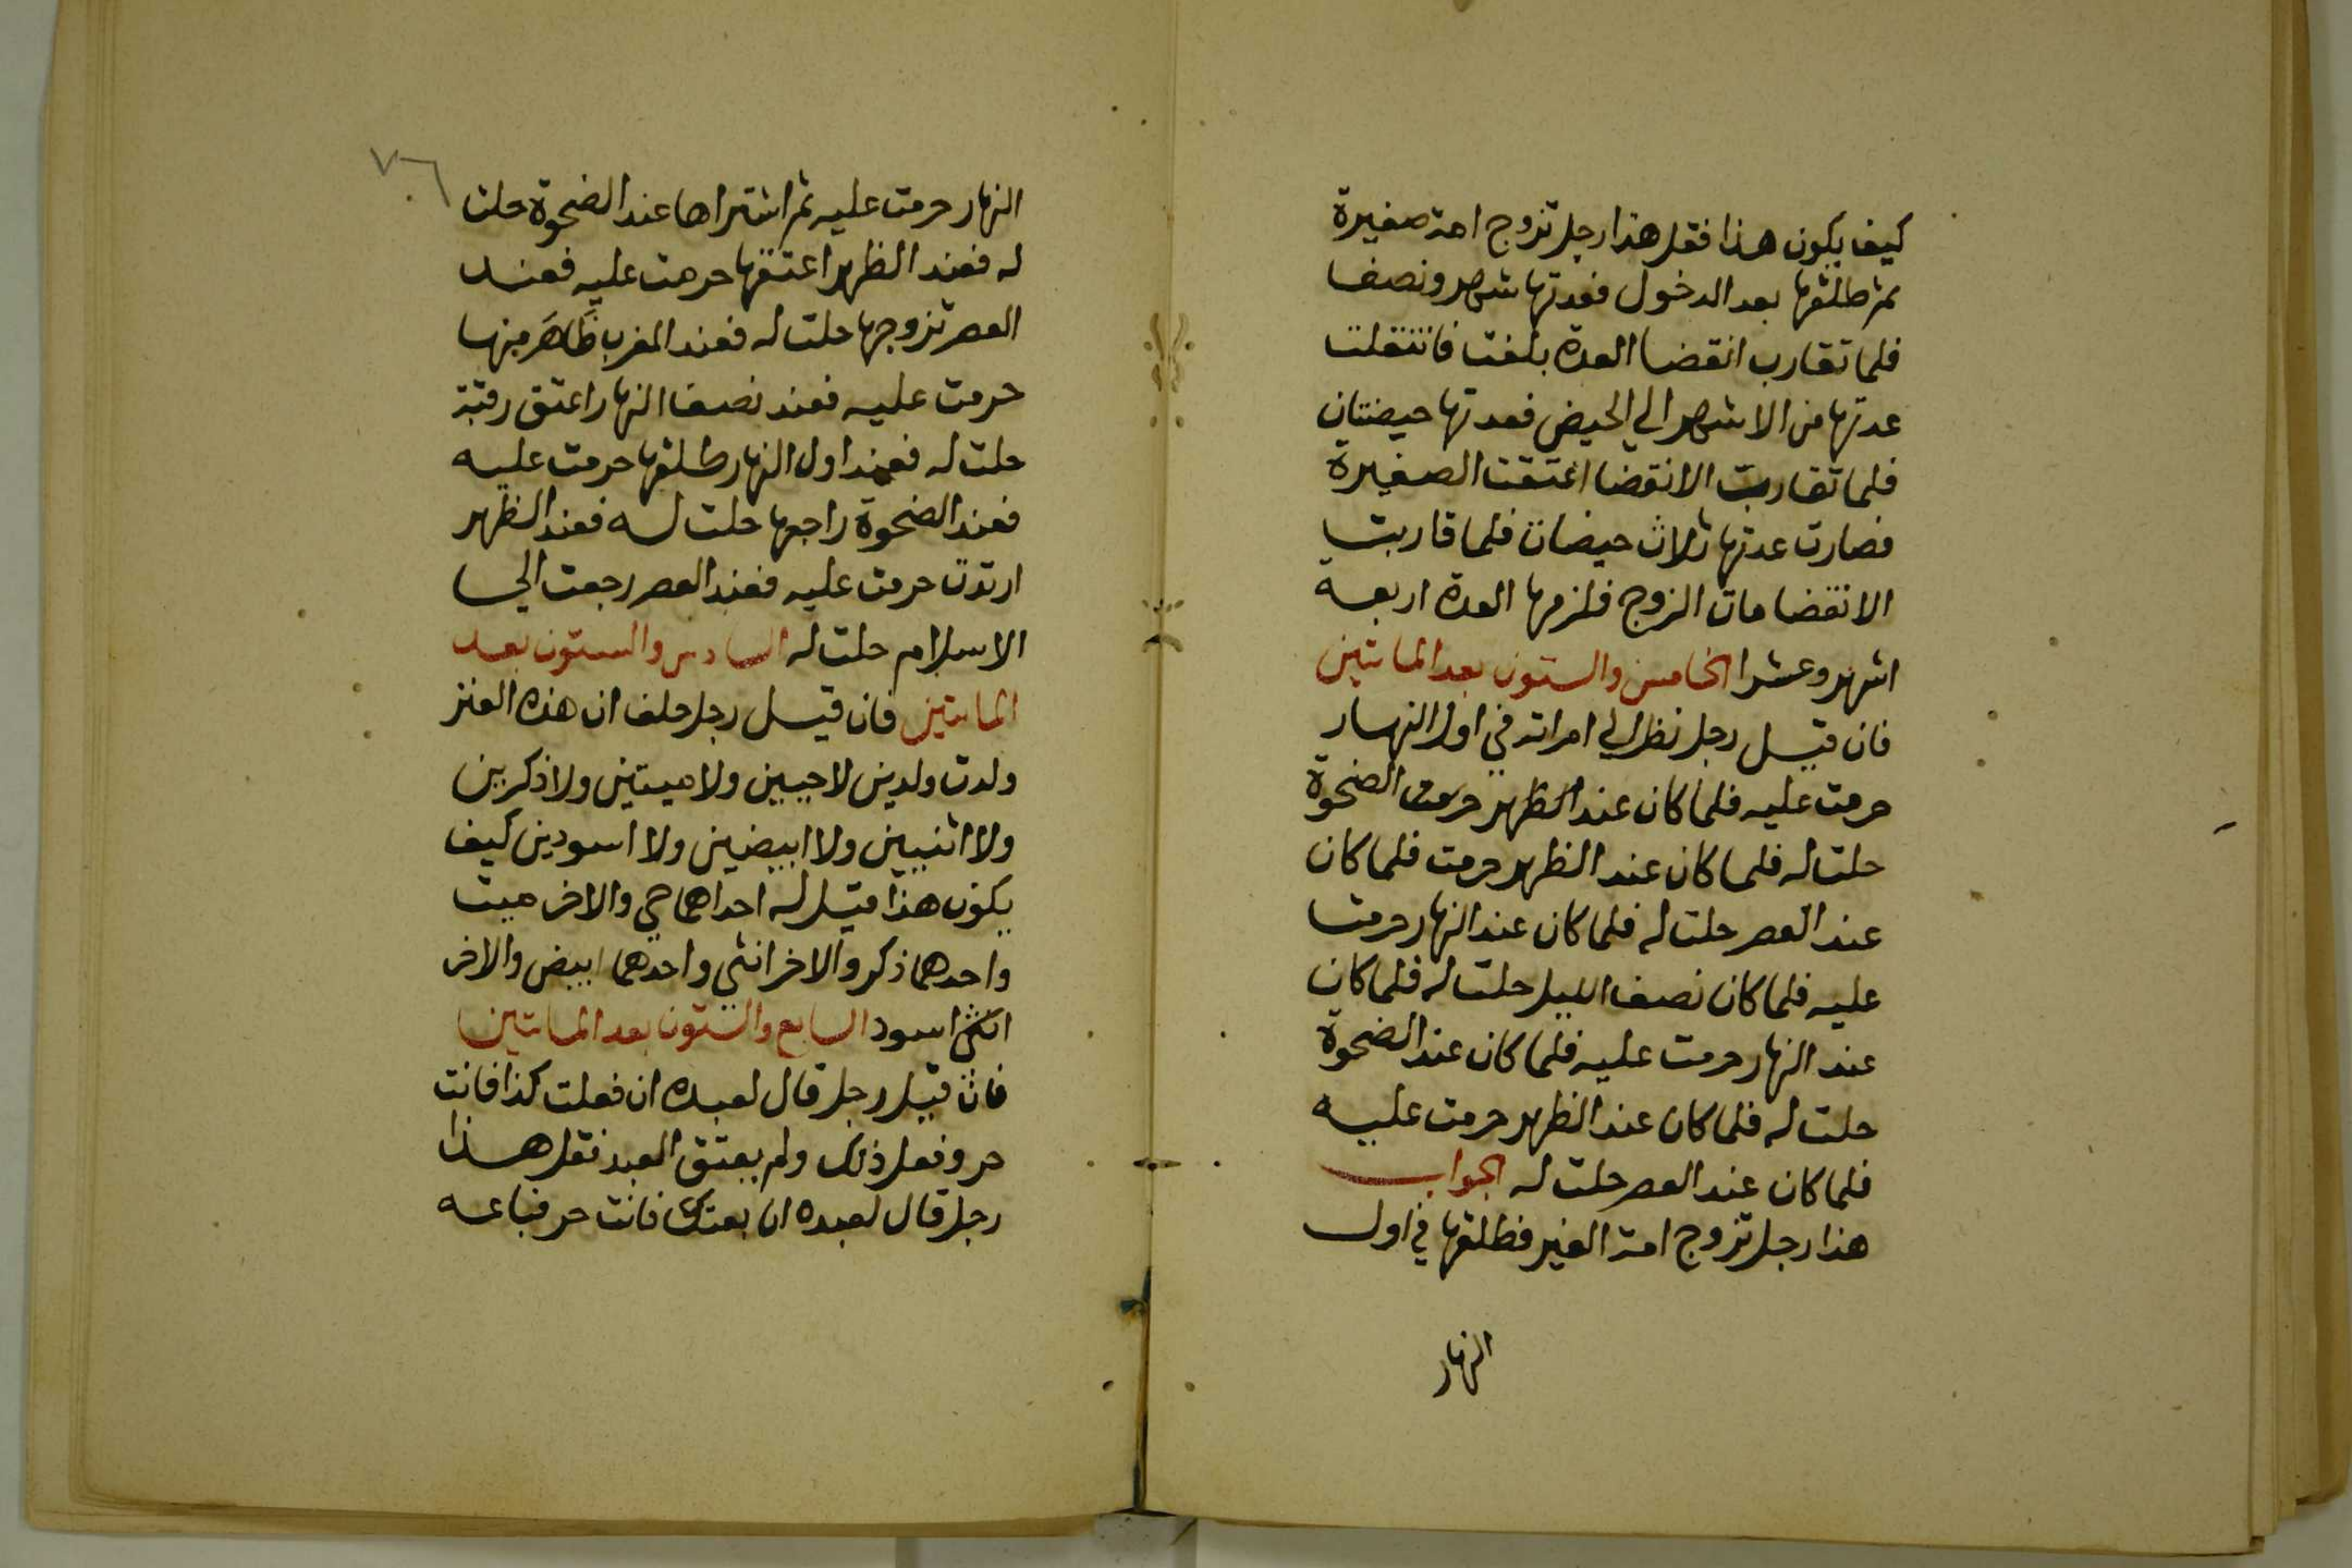 كيف يكون هذا فقل هذا رجل تزوج امة صغيرة
ثم طلقها بعد الدخول فعدتها شهر ونصف
فلما تقارب انقضا العدة بلغت فانتقلت
عدتها من الاشهر الي الحيض فعدتها حيضتان
فلما تقاربت الانقضا اعتقت الصغيرة
فصارت عدتها ثلاث حيضات فلما قاربت
الانقضا مات الزوج فلزمها العدة اربعة
اشهر وعشرا الخامس والستون بعد المايتين
فان قيل رجل نظر الي امراته في اول النهار
حرمت عليه فلما كان عند الضحوة
حلت له فلما كان عند الظهر حرمت فلما كان
عند العصر حلت له فلما كان عند النهار حرمت
عليه فلما كان نصف الليل حلت له فلما كان
عند النهار حرمت عليه فلما كان عند الضحوة
حلت له فلما كان عند الظهر حرمت عليه
فلما كان عند العصر حلت له الجواب
هذا رجل تزوج امة الغير فطلقها في اول
النهار
٧٦
النهار حرمت عليه ثم اشتراها عند الضحوة حلت
له فعند الظهر اعتقها حرمت عليه فعند
العصر تزوجها حلت له فعند المغرب ظَاهَرَ منها
حرمت عليه فعند نصف النهار اعتق رقبة
حلت له فعند اول النهار طلقها حرمت عليه
فعند الضحوة راجعها حلت له فعند الظهر
ارتدت حرمت عليه فعند العصر رجعت الي
الاسلام حلت له السادس والستون بعد
المايتين فان قيل رجل حلف ان هذه العنز
ولدت ولدين لا حيين ولا ميتين ولا ذكرين
ولا انثيين ولا ابيضين ولا اسودين كيف
يكون هذا قيل له احداهما حي والاخر ميت
واحدهما ذكر والاخر انثي واحدهما ابيض والاخر
اسود السابع والستون بعد المايتين
فان قيل رجل قال لعبده ان فعلت كذا فانت
حر وفعل ذلك ولم يعتق العبد فقل هذا
رجل قال لعبده ان بعتك فانت حر فباعه